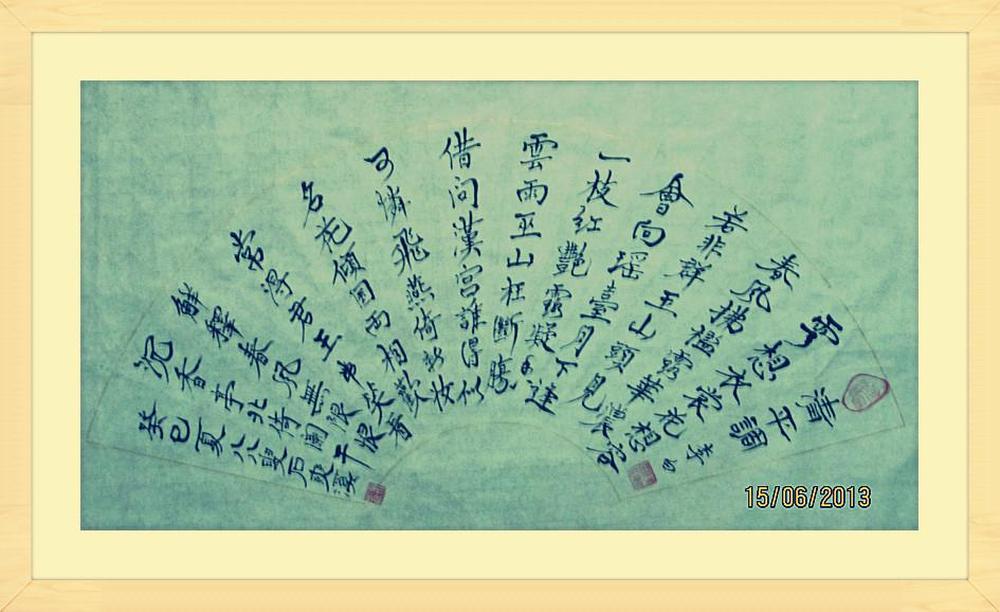 清平調 李白
雲想衣裳花想容
春風拂檻露華濃
若非群玉山頭見
會向瑤臺月下逢
一枝紅艷露凝香
雲雨巫山枉斷腸
借問漢宮誰得似
可憐飛燕倚新妝
名花傾國兩相歡
常得君王帶笑看
解釋春風無限恨
沉香亭北倚闌干
癸巳夏八八叟石漢
15/06/2013